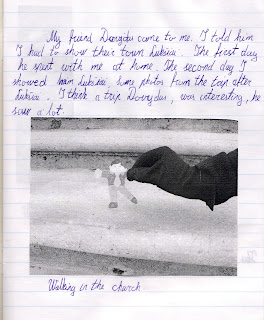 My friend Dovydas came to me. I told him
I had to show their town Lukšiai. The first day
he spent with me at home. The second day I
showed him Lukšiai, some photos from the top after
Lukšiai. I think a trip Dovydas, was interesting, he
saw a lot.
Walking in the church